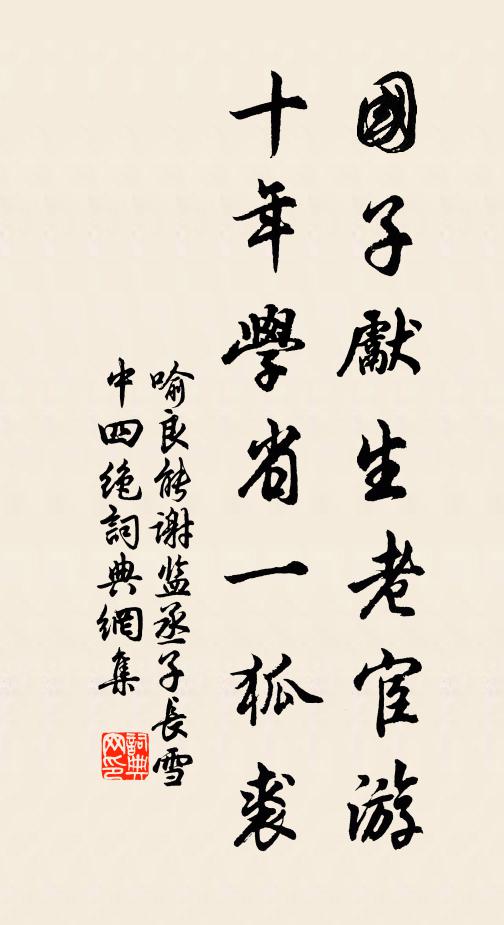 國子獻生老宦游
十年學省一狐裘
喻良能谢监丞子長雪
中四绝詞典網集
詞典网印